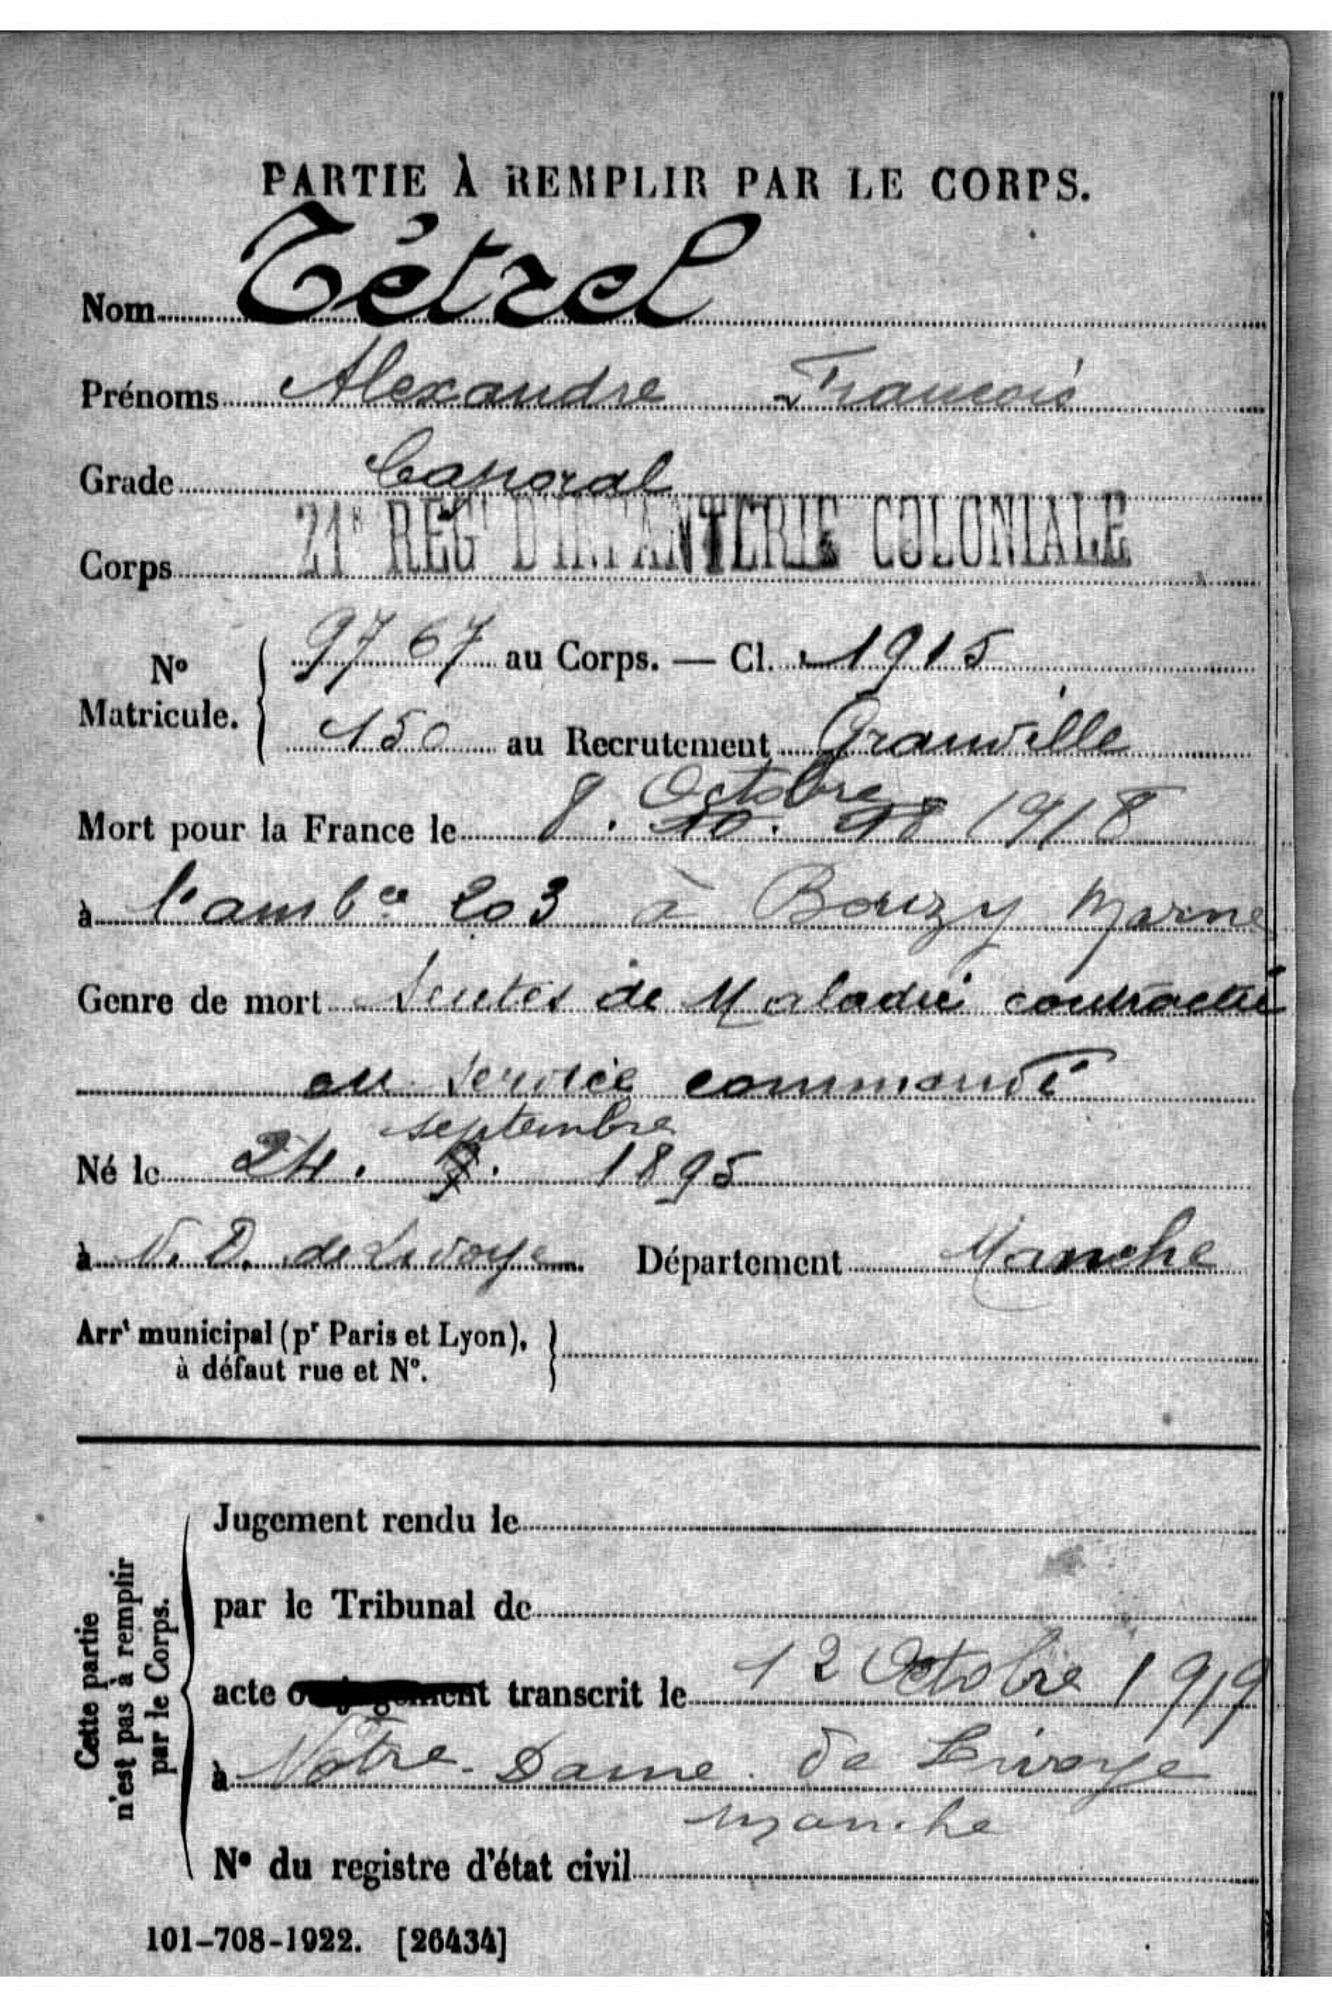 PARTIE À REMPLIR PAR LE CORPS.
Nom Tétrel
Prénoms Alexandre François
Grade Caporal
Corps 21e REGt D'INFANTERIE COLONIALE
No Matricule. { 9767 au Corps. — Cl. 1915
150 au Recrutement Granville
Mort pour la France le 8. Octobre 10. 18 1918
à l'ambce 203 à Bouzy Marne
Genre de mort Suites de Maladie contractée
en service commandé
septembre
Né le 24. 9. 1895
à N. D. de Livoye Département Manche
Arrt municipal (pr Paris et Lyon), }
à défaut rue et No.
Cette partie
n'est pas à remplir
par le Corps.
Jugement rendu le
par le Tribunal de
acte ou jugement transcrit le 12 Octobre 1919
à Notre-Dame de Livoye
Manche
No du registre d'état civil
101-708-1922. [26434]